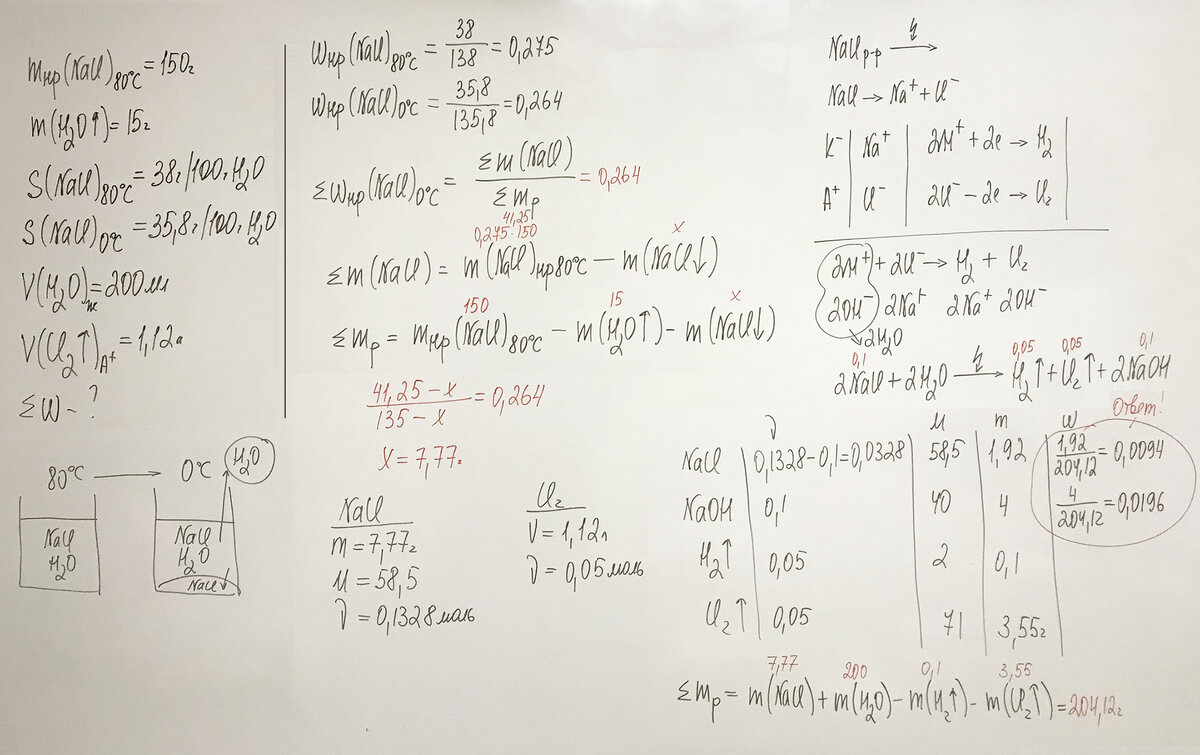 mнр(NaCl)80°C = 150г
m(H2O↑) = 15г
S(NaCl)80°C = 38г/100г H2O
S(NaCl)0°C = 35,8г/100г H2O
V(H2O)ж = 200мл
V(Cl2↑)A+ = 1,12л
ΣW - ?
80°C → 0°C H2O
NaCl
H2O
NaCl
H2O
NaCl↓
Wнр(NaCl)80°C = 38/138 = 0,275
Wнр(NaCl)0°C = 35,8/135,8 = 0,264
ΣWнр(NaCl)0°C = Σm(NaCl)/Σmр = 0,264
41,25
0,275·150 x
Σm(NaCl) = m(NaCl)нр80°C – m(NaCl↓)
150 15 x
Σmр = mнр(NaCl)80°C – m(H2O↑) – m(NaCl↓)
41,25 – x / 135 – x = 0,264
x = 7,77г
NaCl
m = 7,77г
M = 58,5
ν = 0,1328моль
Cl2
V = 1,12л
ν = 0,05моль
NaCl р-р →
NaCl → Na+ + Cl–
K– | Na+ | 2H+ + 2e → H2
A+ | Cl– | 2Cl– – 2e → Cl2
2H+ + 2Cl– → H2 + Cl2
2OH– 2Na+ 2Na+ 2OH–
2H2O
0,1 0,05 0,05 0,1
2NaCl + 2H2O → H2↑ + Cl2↑ + 2NaOH
Ответ!
ν M m W
NaCl | 0,1328–0,1=0,0328 | 58,5 | 1,92 | 1,92/204,12 = 0,0094
NaOH | 0,1 | 40 | 4 | 4/204,12 = 0,0196
H2↑ | 0,05 | 2 | 0,1
Cl2↑ | 0,05 | 71 | 3,55г
7,77 200 0,1 3,55
Σmр = m(NaCl) + m(H2O) – m(H2↑) – m(Cl2↑) = 204,12г